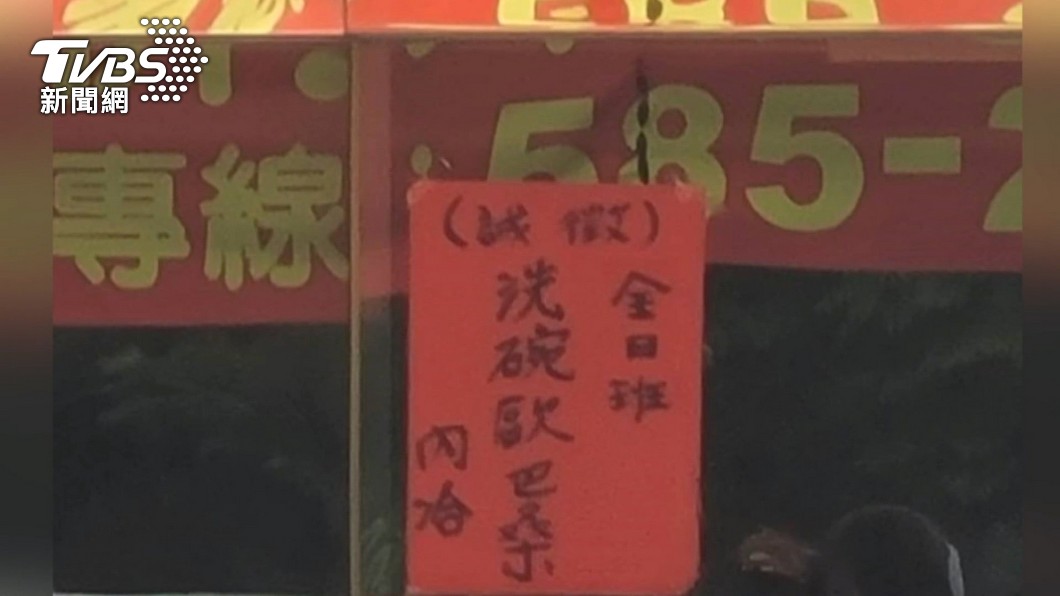 TVBS
新聞網
585-2
專線：
(誠徵)
全日班
洗碗歐巴桑
內洽